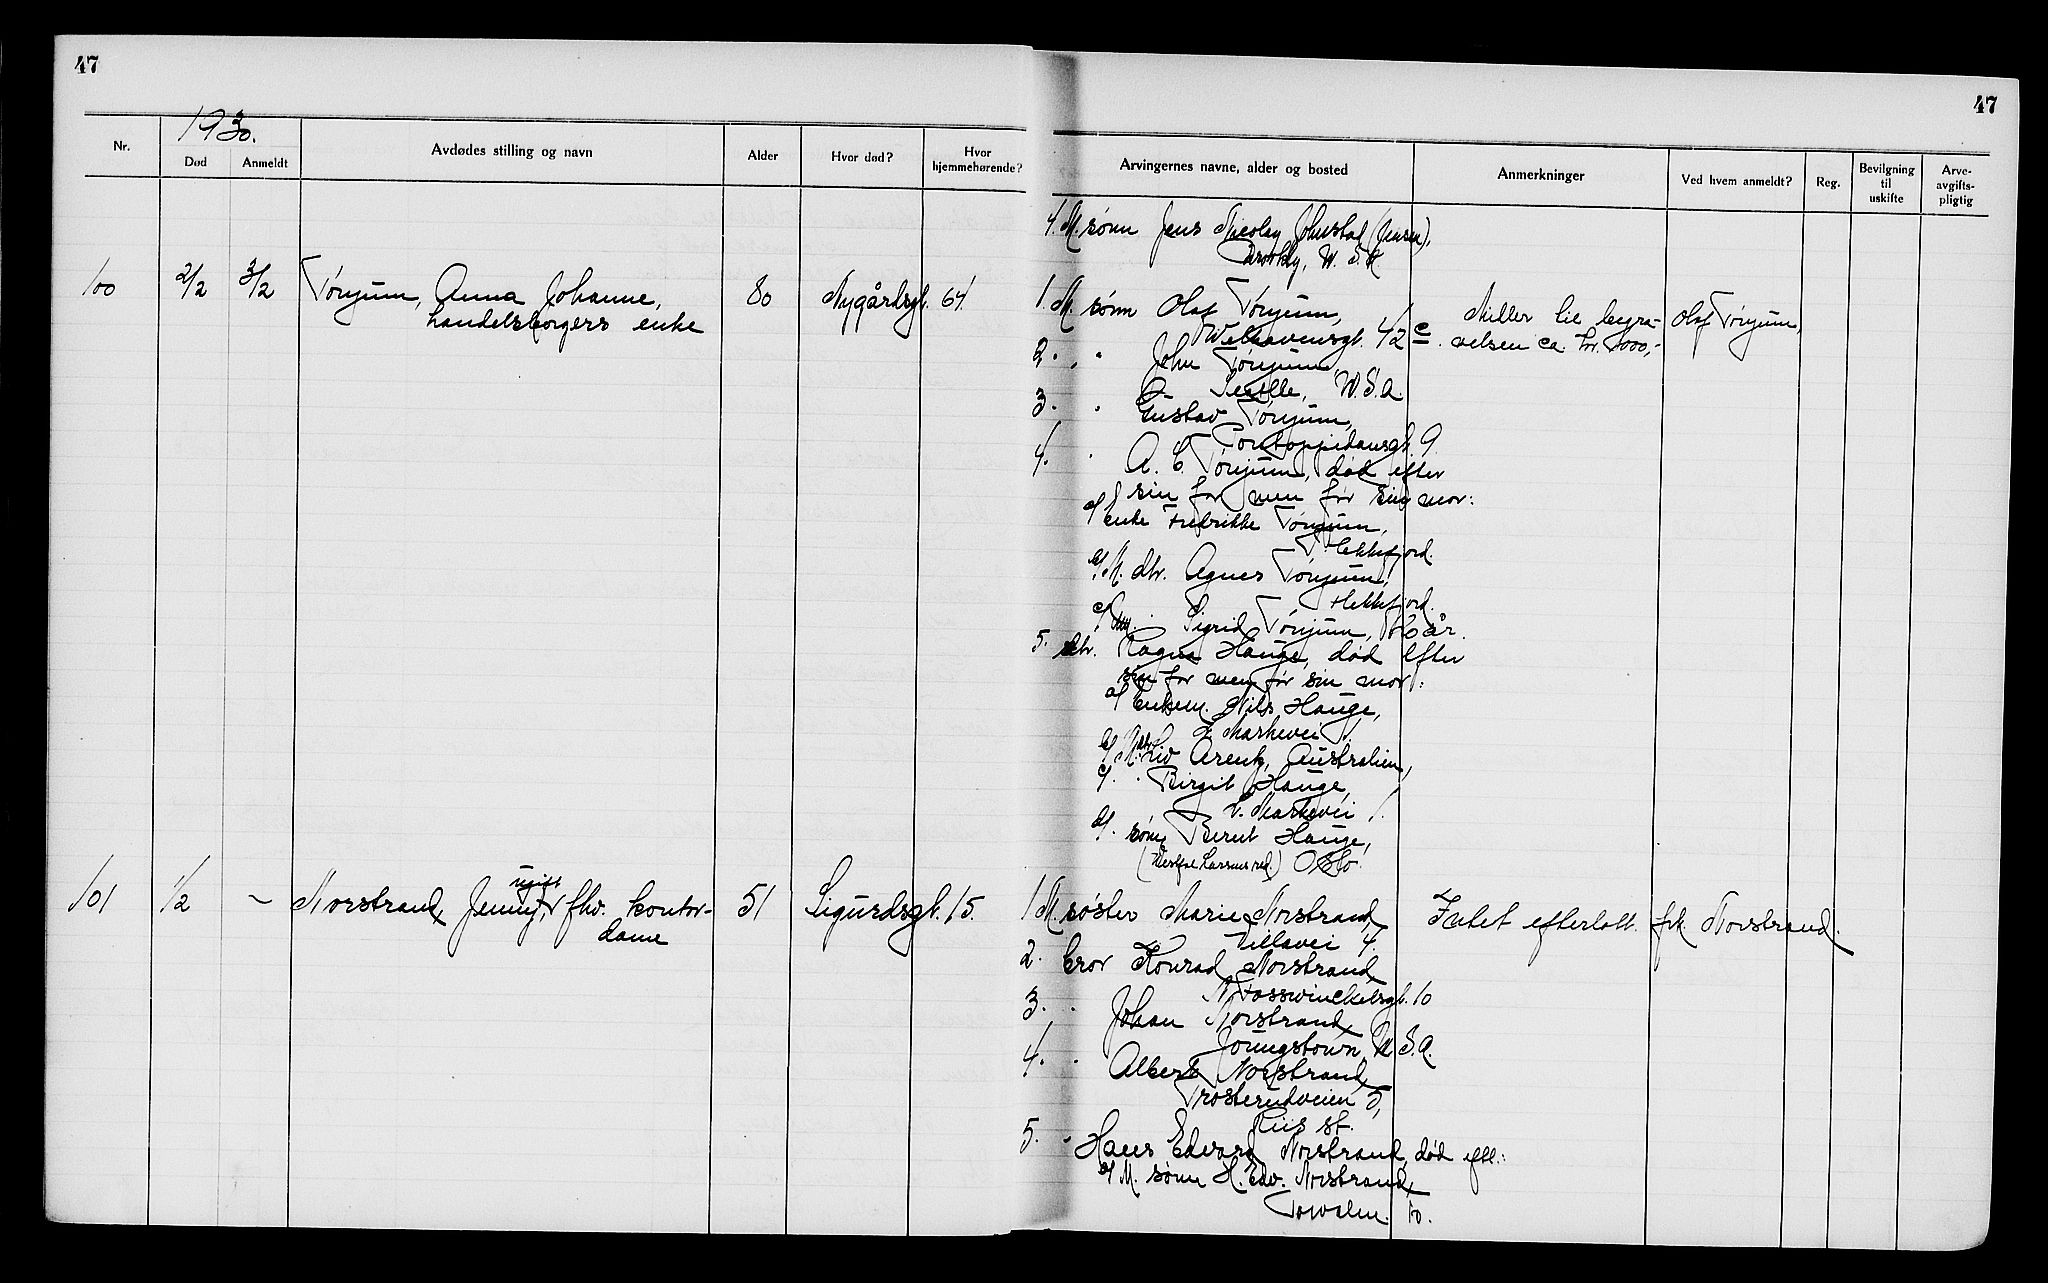 47
47
1930.
Nr.
Død
Anmeldt
Avdødes stilling og navn
Alder
Hvor død?
Hvor hjemmehørende?
Arvingernes navne, alder og bosted
Anmerkninger
Ved hvem anmeldt?
Reg.
Bevilgning til uskifte
Arve-avgifts-pligtig
4. M. sønn Jens Nicolay Johnstad (Jensen),
U. S. A
100 2/2 3/2 Tønjum, Anna Johanne, 80 Nygårdsgt. 64.
handelsborgers enke
1. M. sønn Olaf Tønjum,
Welhavensgt. 42 c.
Midler til begra-
velsen ca. kr. 1000,-
Olaf Tønjum,
2. " " John Tønjum,
Seattle, U.S.A.
3. " Gustav Tønjum,
Pontoppidansgt. 9.
4. " A. C. Tønjum, død efter
sin far men før sin mor:
a/ Enke Fredrikke Tønjum,
Flekkefjord.
b/ M. dtr. Agnes Tønjum,
Flekkefjord.
c/ Um. " Sigrid Tønjum, 16 år.
5. dtr. Ragna Hauge, død efter
sin far men før sin mor:
a/ Enkem. Nils Hauge,
L. Markevei 1.
b/ M. dtr. Liv Arentz, Australien,
c/ " " Birgit Hauge,
L. Markevei 1.
d/ " sønn Bernt Hauge,
(Westfal Larsens red.) Oslo.
101 1/2 – Norstrand, Jenny, ugift fhv. kontor- 51 Sigurdsgt. 15.
dame
1 M. søster Marie Norstrand,
Villavei 4.
Intet efterlatt. frk. Norstrand.
2. " bror Konrad Norstrand,
Fosswinckelsgt. 10
3. " " Johan Norstrand,
Youngstown, U.S.A.
4. " " Albert Norstrand,
Trosterudveien 5,
Riis st.
5. " Hans Edvard Norstrand, død eftl.:
a/ M. sønn H. Edv. Norstrand,
10.